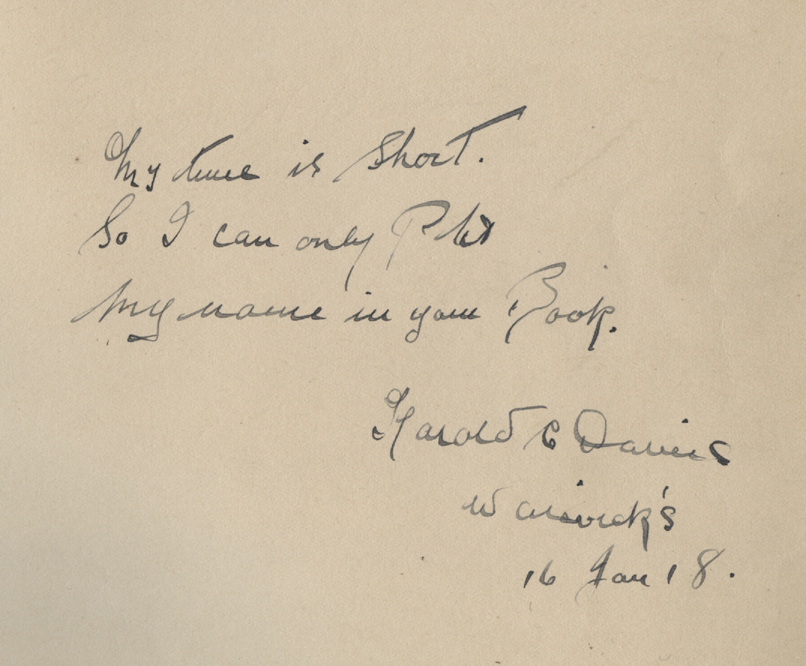 My time is Short.
So I can only Put
My name in your Book.
Harold C Davies
Warwick's
16 Jan 18.